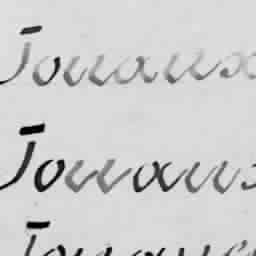 Jouaux
Jouaux